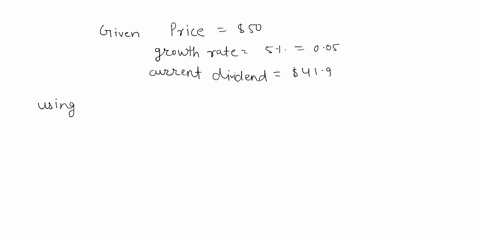 Given Price = $50
growth rate = 5% = 0.05
current dividend = $41.9
using